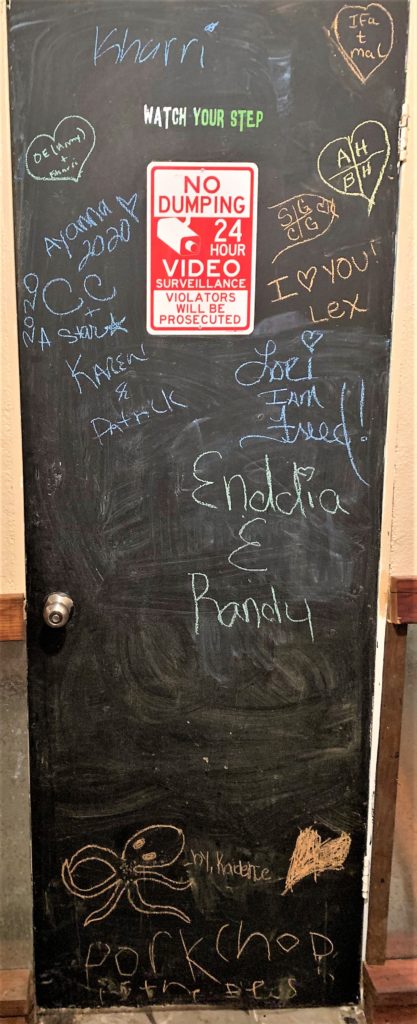 Kharri
IFa
t
mal
WATCH YOUR STEP
DE(Army)
+
Kharri
A H
B H
NO
DUMPING
24
HOUR
VIDEO
SURVEILLANCE
VIOLATORS
WILL BE
PROSECUTED
SG
CG
Ayanna
2020
I ♡ YOU!
Lex
CC
+
A Star
KAREN
&
PATRICK
Lori
I am
Freed!
Enddia
&
Randy
by, Kadence
PorkChop
is the